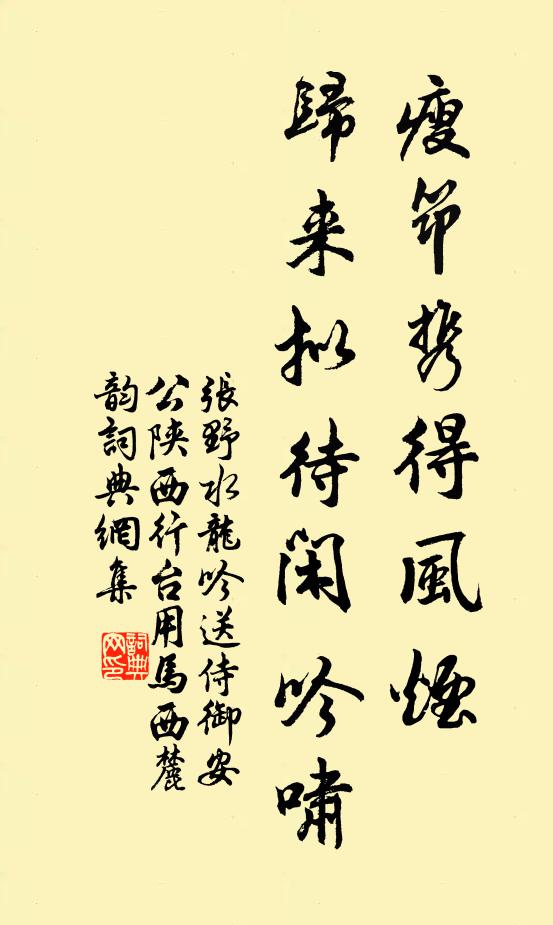 瘦筇携得風煙
歸来拟待閑吟嘯
張野水龍吟送侍御安
公陝西行台用馬西麓
韵詞典網集
詞典
网